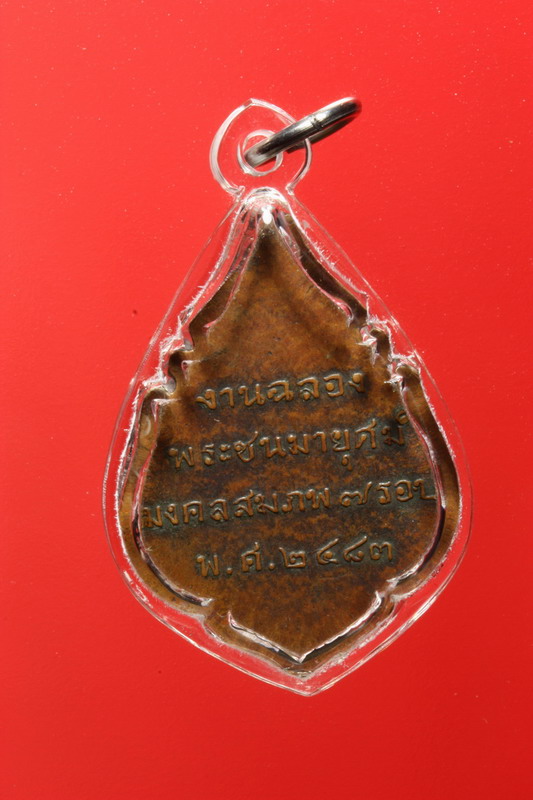 งานฉลอง
พระชนมายุศม์
มงคลสมภพ ๗ รอบ
พ.ศ.๒๔๘๓